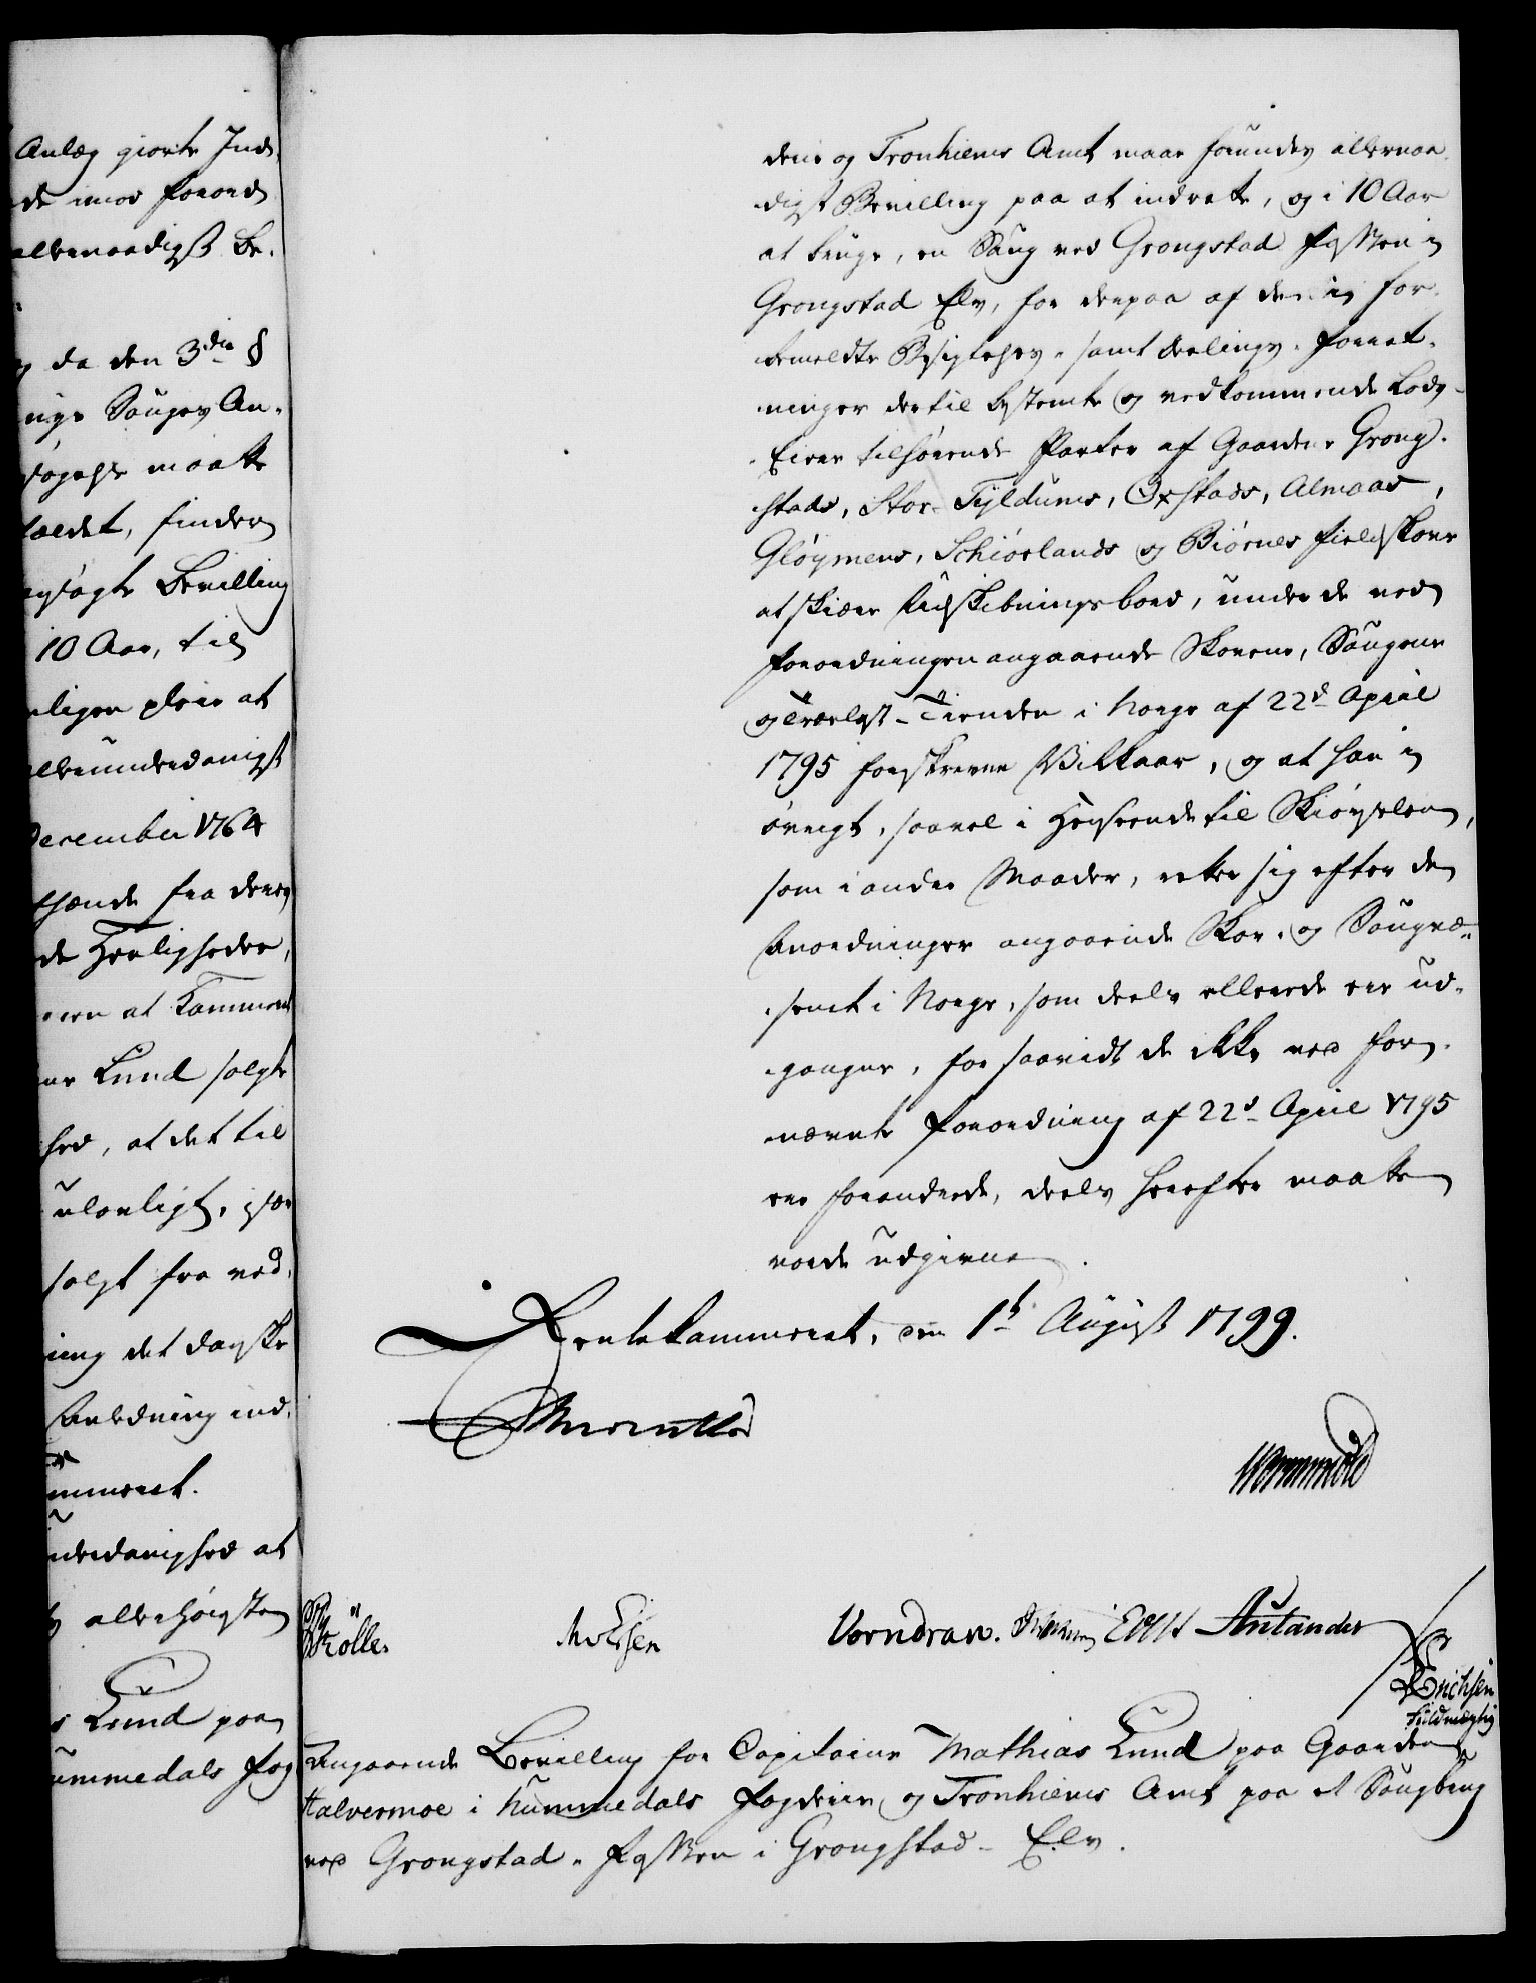 Anlæg giorte Ind-
de imod Forord
allernaadigst Be-
da den 3die §
nye Sauges An-
søgte maatte
holdet, finder
nsøgte Bevilling
10 Aar, til
ligen pleie at
allerunderdanigst
December 1764
de Herligheder,
at Kammeret
Lund solgte
hed, at det til
ulovligt,
solgt fra ved
det danske
Anledning ind-
mmeret.
underdanighed at
allerhøieste
Lund paa
ummedals Fog
derie og Tronhiems Amt maae forundes allernaa-
digst Bevilling paa at indrette, og i 10 Aar
at bruge, en Saug ved Grongstad Fossen i
Grongstad Elv, for derpaa af den i for-
bemeldte Besigtelses- samt Deelings-Forret-
ninger dertil bestemte og vedkommende Lods-
Eiere tilhørende Parter af Gaardene Grong-
stads, Stor-Fyldums, Oxstads, Almaas,
Gløymens, Schiørlands og Biørnes Fieldskove
at skiære Udskibningsbord, under de ved
Forordningen angaaende Skovene, Saugene
og Trælast-Tienden i Norge af 22d April
1795 foreskrevne Vilkaar, og at han i
øvrigt, saavel i Henseende til Skiøyselen,
som i andre Maader, retter sig efter de
Anordninger angaaende Skov- og Saugvæ-
senet i Norge, som deels allerede ere ud-
gangne, for saavidt de ikke ved for-
nævnte Forordning af 22d April 1795
ere forandrede, deels herefter maatte
vorde udgivne.
Rentekammeret, den 1t August 1799.
Wormskiold
Rölle. Vorndran. Autander
Erichsen
Fuldmægtig
Angaaende Bevilling for Capitaine Mathias Lund paa Gaarden
Halvermoe i Nummedals Fogderie og Tronhiems Amt paa et Saugbrug
ved Grongstad-Fossen i Grongstad-Elv.